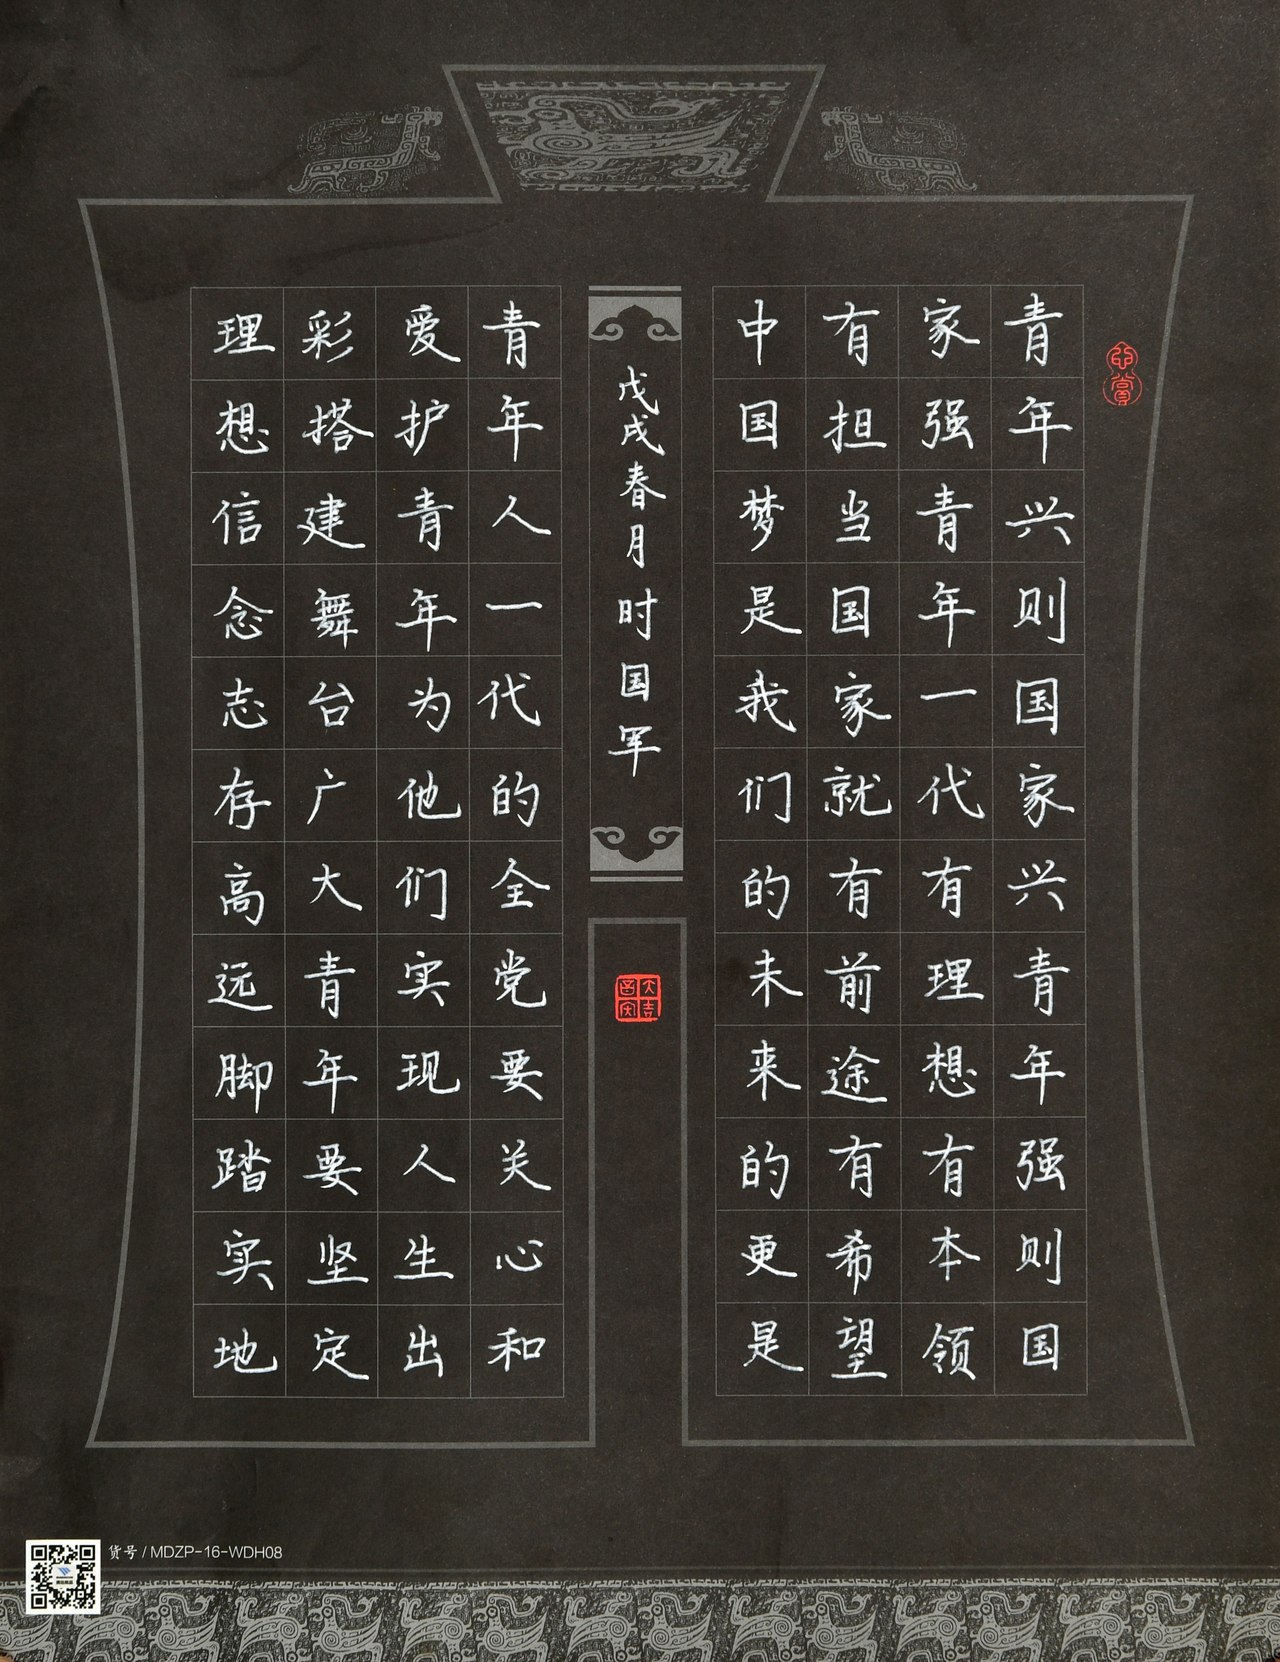 青年兴则国家兴青年强则国
家强青年一代有理想有本领
有担当国家就有前途有希望
中国梦是我们的未来的更是
戊戌春月时国军
青年人一代的全党要关心和
爱护青年为他们实现人生出
彩搭建舞台广大青年要坚定
理想信念志存高远脚踏实地
货号/MDZP-16-WDH08